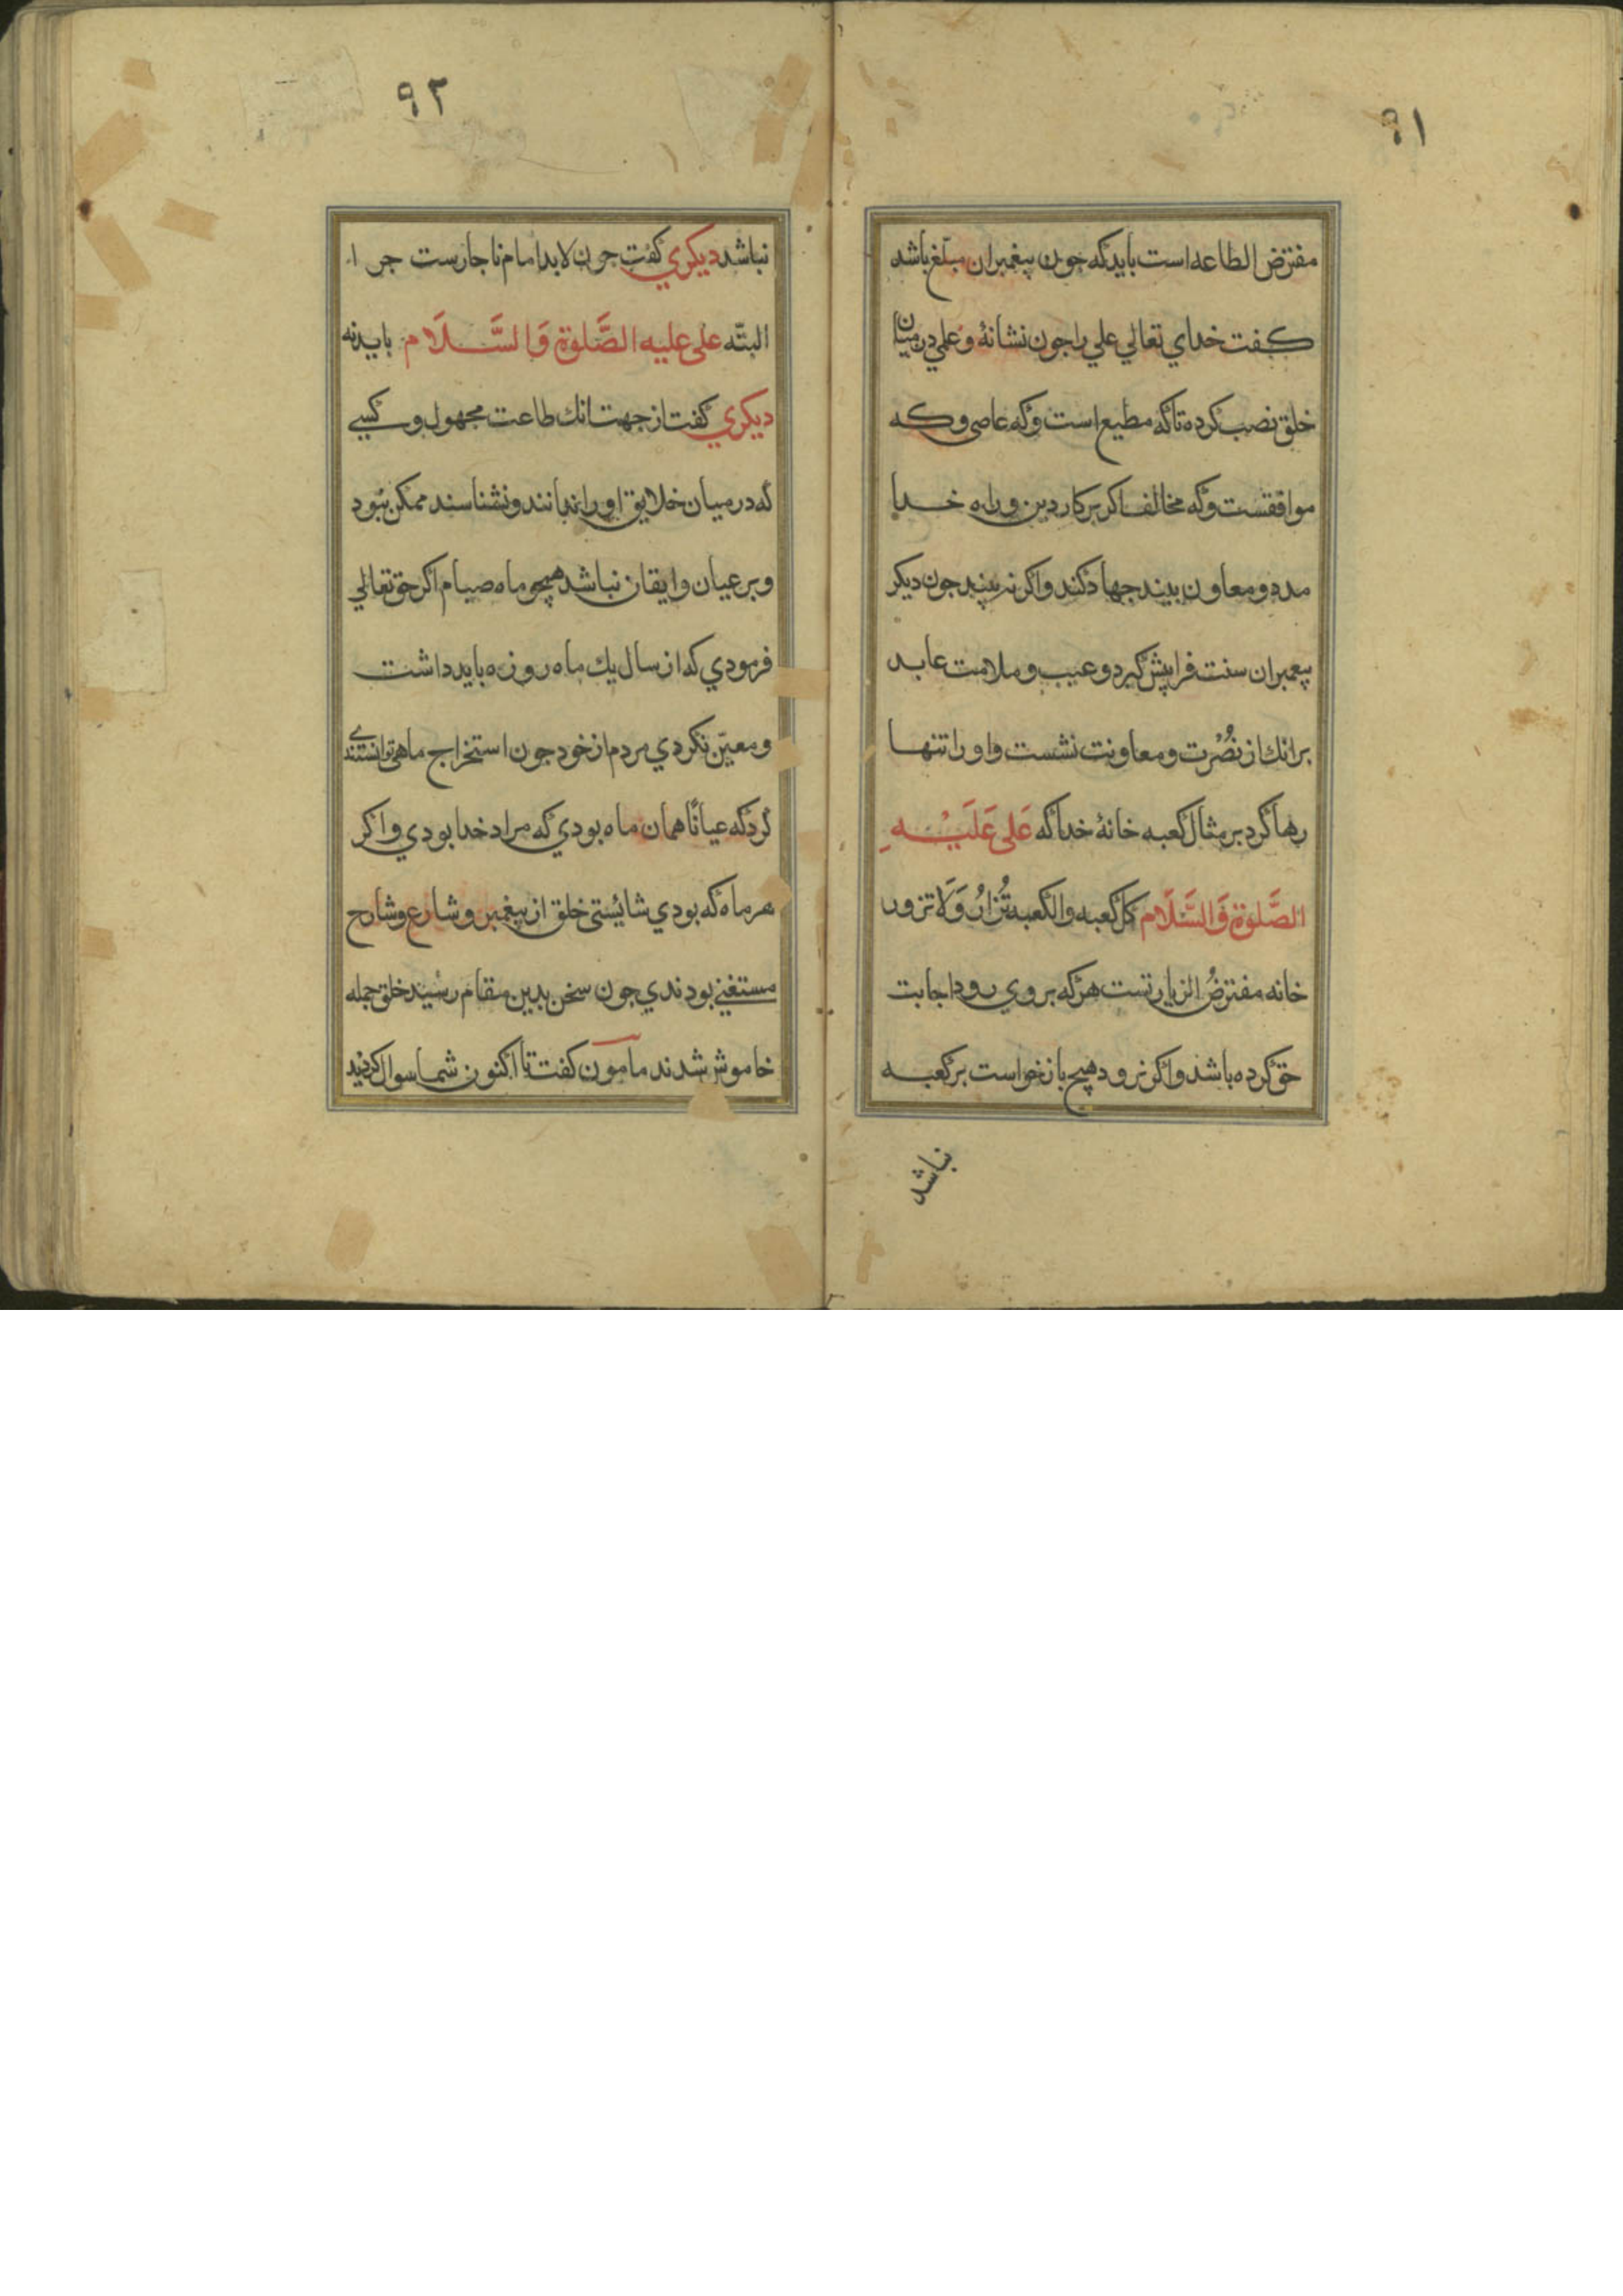 ٩١
مفترض الطاعه است بايد كه جون پيغمبران مبلّغ باشد
كفت خداي تعالي علي را جون نشانهٔ و علمي در ميان
خلق نصب كرده تا كه مطيع است و كه عاصي و كه
موافقست و كه مخالف اكر بر كار دين و راه خدا
مدد و معاون بيند جهاد كند و اكر نه بيند جون ديكر
پيغمبران سنت فرا پيش گيرد و عيب و ملامت عايد
برانك از نُصْرت و معاونت نشست و او را تنها
رها كرد بر مثال كعبه خانهٔ خدا كه عَلى عَلَيْهِ
الصَّلوة وَالسَّلام كالكعبه والكعبه تُزارُ وَلَا تزور
خانه مفترضُ الزيارتست هر كه بروي رود اجابت
حق كرده باشد و اكر نرود هيچ بازخواست بر كعبه
نباشد
٩٢
نباشد ديكري كفت جون لابد امام ناجارست جرا
البتّه على عليه الصَّلوة وَالسَّلَام بايد نه
ديكري كفت از جهت انك طاعت مجهول و كسي
كه در ميان خلايق او را ندانند و نشناسند ممكن نبود
و بر عيان و ايقان نباشد همچو ماه صيام اكر حق تعالي
فرمودي كه از سال يك ماه روزه بايد داشت
و معيّن نكردي مردم از خود جون استخراج ماهى توانستندي
كرد كه عيانًا همان ماه بودي كه مراد خدا بودي و اكر
هر ماه كه بودي شائيستى خلق از پيغمبر و شارع و شارح
مستغني بودندي جون سخن بدين مقام رسيد خلق جمله
خاموش شدند مامون كفت تا اكنون شما سوال كرديد